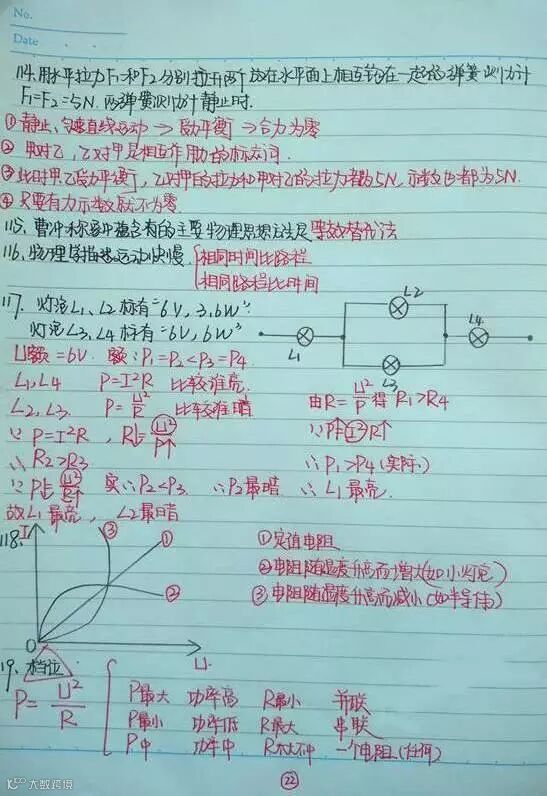 No.
Date
114.用水平拉力F₁和F₂分别拉开两个放在水平面上相互钩在一起的弹簧测力计
F₁=F₂=5N.两弹簧测力计静止时.
①静止、匀速直线运动→受力平衡→合力为零
②甲对乙,乙对甲是相互作用力的标志词.
③此时甲乙受力平衡,乙对甲的拉力和甲对乙的拉力都为5N,示数也都为5N.
④只要有力示数就不为零
115.曹冲称象中蕴含有的主要物理思想方法是等效替代法
116.物理学描述运动快慢 相同时间比路程
相同路程比时间
117.灯泡L₁、L₂标有"6V,3.6W"
灯泡L₃、L₄标有"6V,6W"
L₁ L₂ L₃ L₄
U额=6V. 额:P₁=P₂<P₃=P₄
L₁,L₄ P=I²R 比较谁亮.
L₂,L₃. P=U²/R 比较谁暗 由R=U²/P得R₁>R₄
∵P=I²R, R=U²/P↑ ∵P↑=I²R↑
∴R₂>R₃ ∴P₁>P₄(实际)
∵P=U²/R↑ 实∴P₂<P₃ ∴P₂最暗 ∴L₁最亮.
故L₁最亮,L₂最暗
118. I ③ ① ② O U
①定值电阻
②电阻随温度升高而增大(如小灯泡)
③电阻随温度升高而减小(如半导体)
19.档位
P=U²/R
P最大 功率高 R最小 并联
P最小 功率低 R最大 串联
P中 功率中 一个电阻(任何)
22
大数跨境